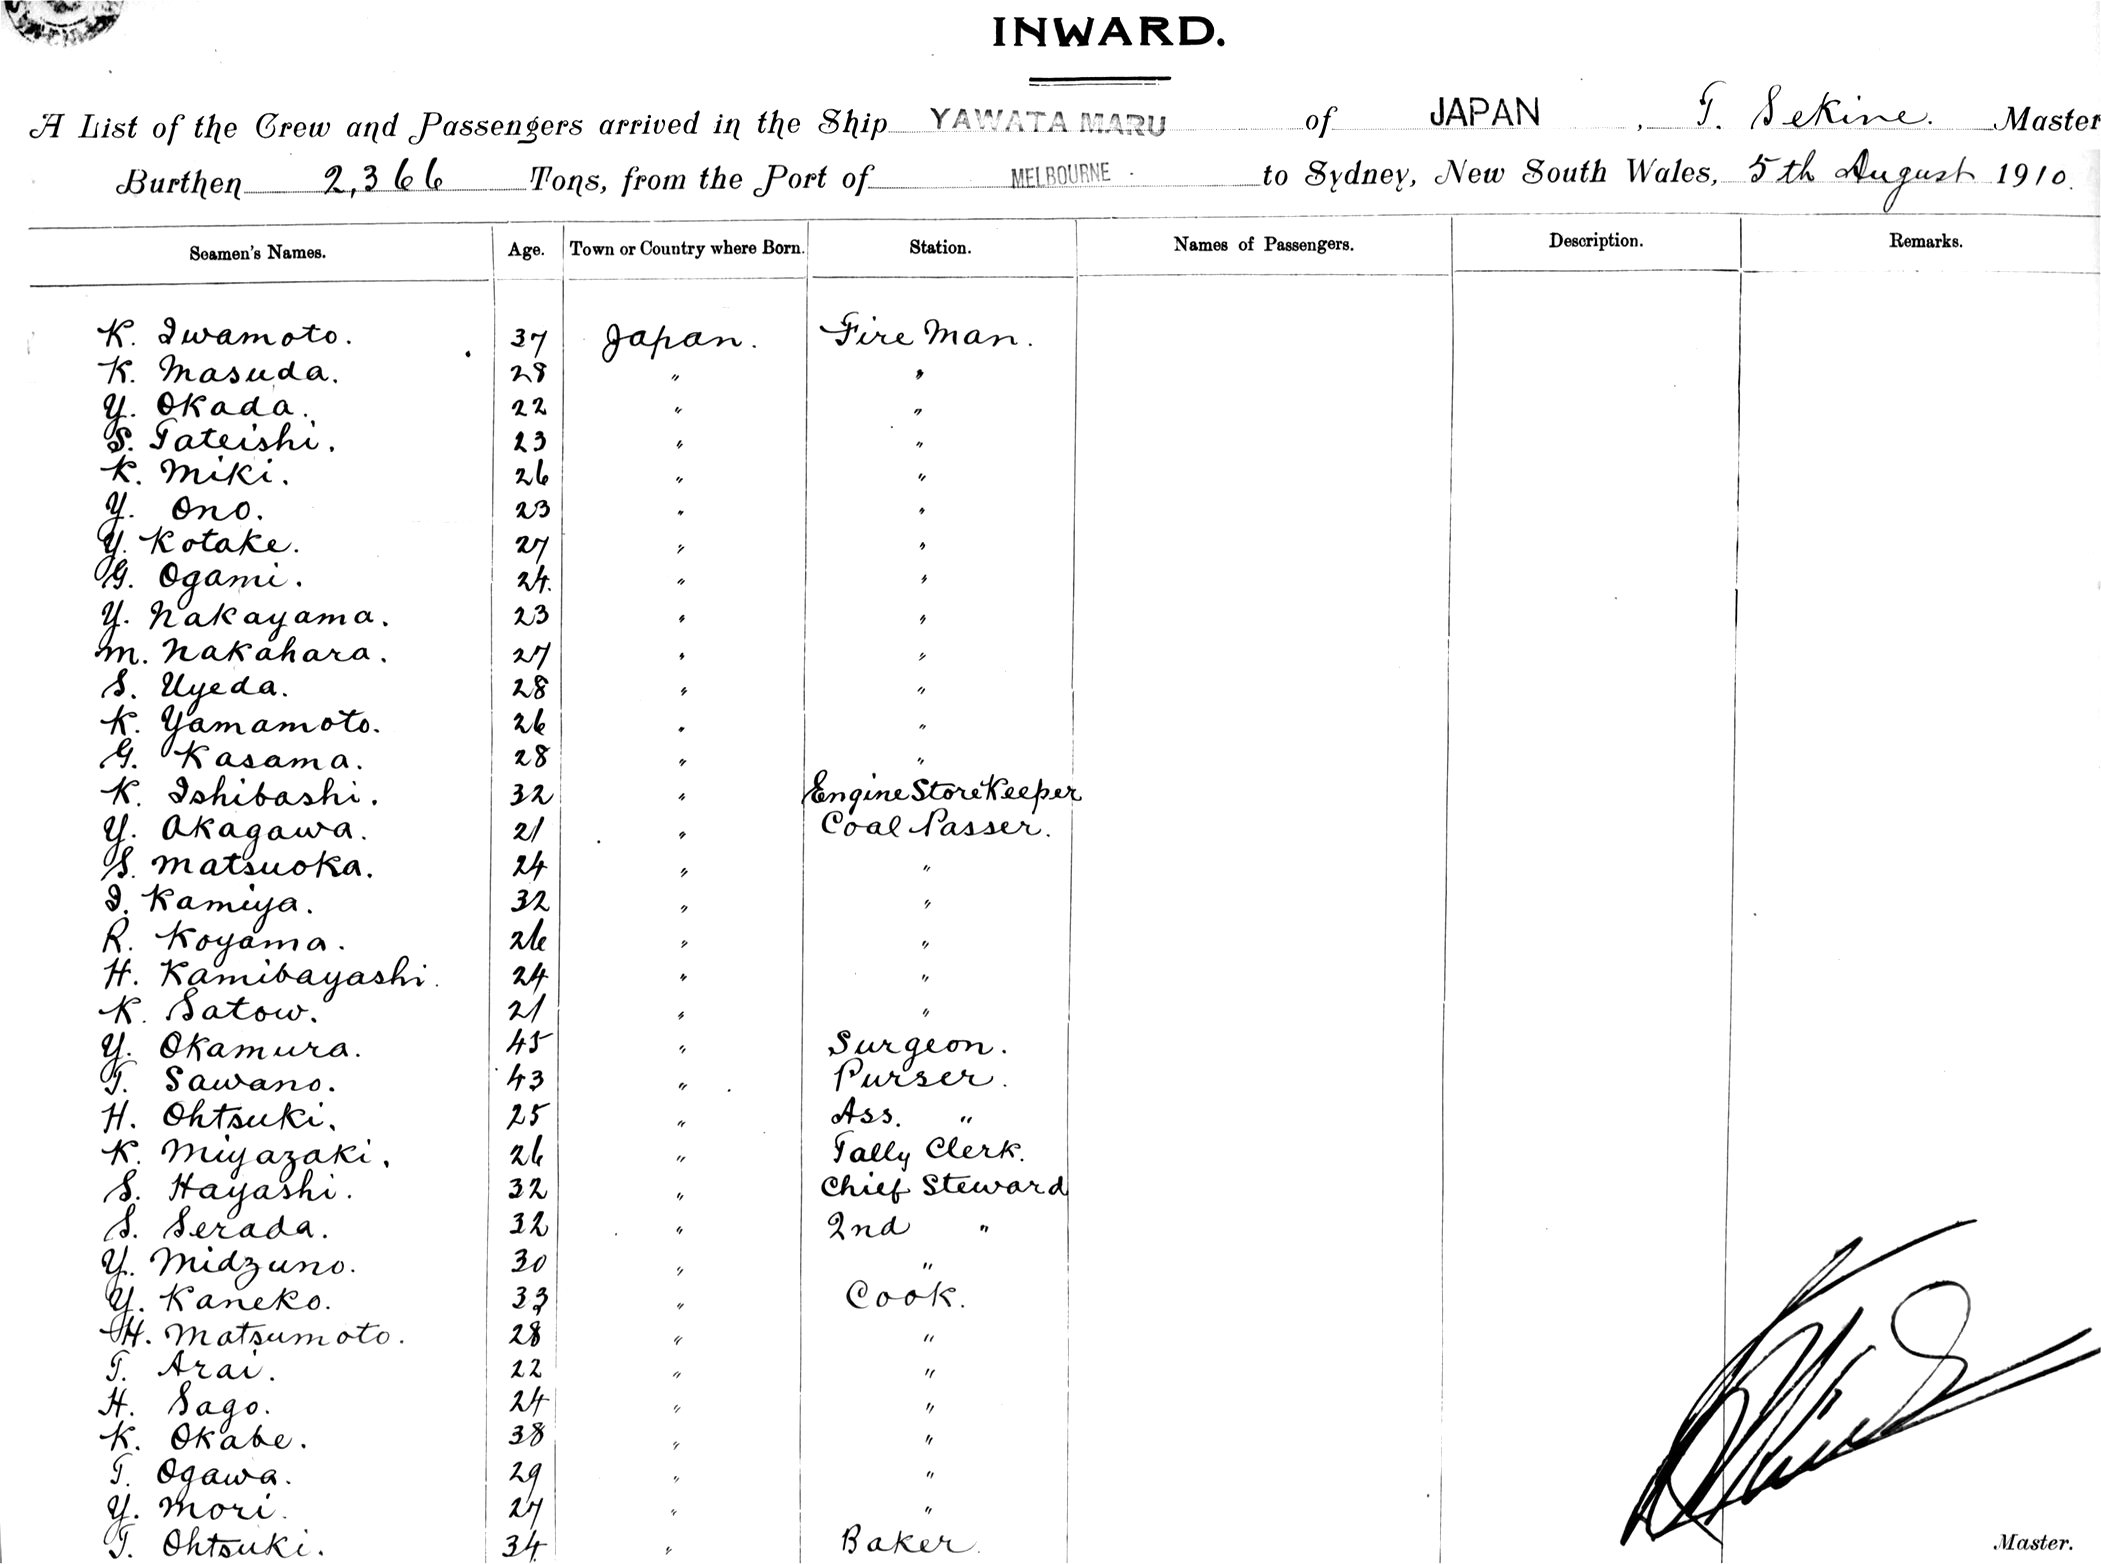 INWARD.
A List of the Crew and Passengers arrived in the Ship YAWATA MARU of JAPAN, T. Sekine. Master
Burthen 2,366 Tons, from the Port of MELBOURNE. to Sydney, New South Wales, 5th August 1910.
Seamen's Names. Age. Town or Country where Born. Station. Names of Passengers. Description. Remarks.
K. Iwamoto. 37 Japan. Fire Man.
K. Masuda. 28 " "
Y. Okada. 22 " "
S. Tateishi. 23 " "
K. Miki. 26 " "
Y. Ono. 23 " "
Y. Kotake. 27 " "
G. Ogami. 24. " "
Y. Nakayama. 23 " "
M. Nakahara. 27 " "
S. Uyeda. 28 " "
K. Yamamoto. 26 " "
G. Kasama. 28 " "
K. Ishibashi. 32 " Engine Store Keeper
Y. Akagawa. 21 " Coal Passer.
S. Matsuoka. 24 " "
I. Kamiya. 32 " "
R. Koyama. 26 " "
H. Kamibayashi. 24 " "
K. Satow. 21 " "
Y. Okamura. 45 " Surgeon.
T. Sawano. 43 " Purser.
H. Ohtsuki. 25 " Ass. "
K. Miyazaki. 26 " Tally Clerk.
S. Hayashi. 32 " Chief Steward
S. Serada. 32 " 2nd "
Y. Midzuno. 30 " "
Y. Kaneko. 33 " Cook.
H. Matsumoto. 28 " "
T. Arai. 22 " "
H. Sago. 24 " "
K. Okabe. 38 " "
T. Ogawa. 29 " "
Y. Mori. 27 " "
T. Ohtsuki. 34 " Baker.
Master.